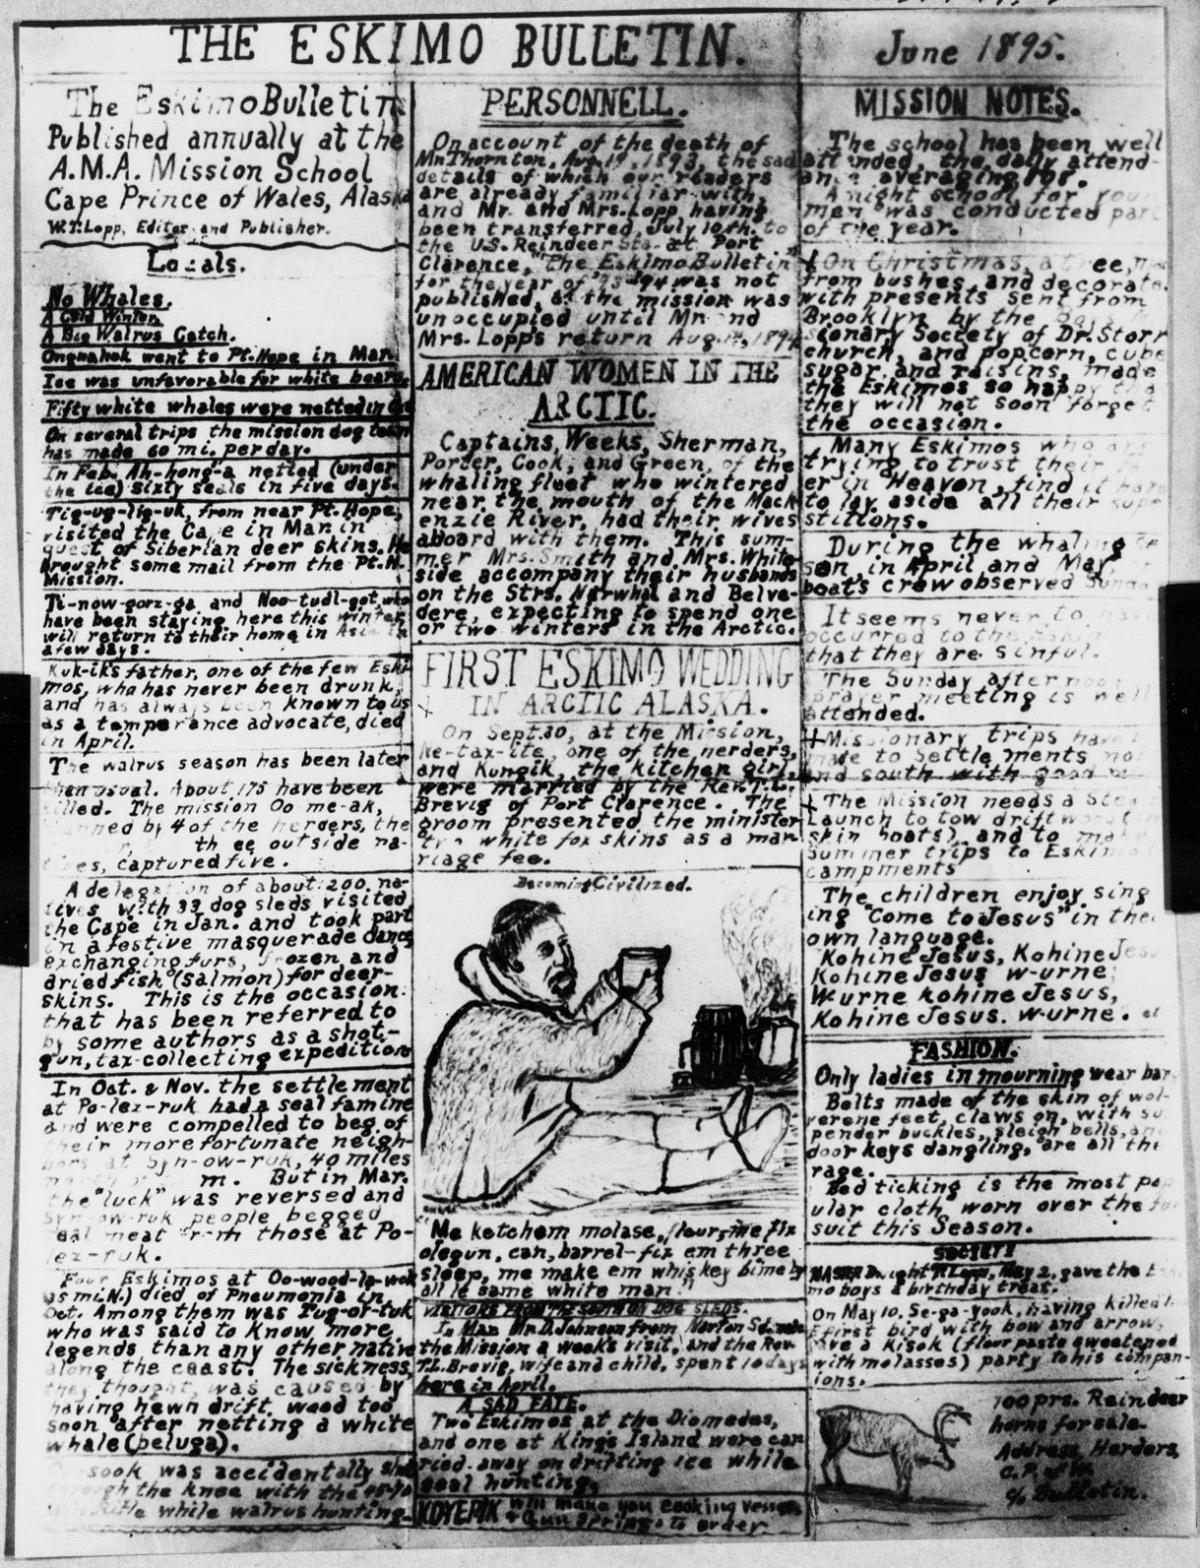 THE ESKIMO BULLETIN.
June 1895.
The Eskimo Bulletin
Published annually at the
A.M.A. Mission School
Cape Prince of Wales, Alaska
W.T. Lopp, Editor and Publisher.
Locals.
No Whales.
A Cold Winter.
A Big Walrus Catch.
Ongnahok went to Pt. Hope in Mar.
Ice was unfavorable for white bears.
Fifty white whales were netted in
On several trips the mission dog team
has made 60 mi. per day.
In Feb. Ah-hong-a netted (under
the ice) sixty seals in five days.
Tig-ug-lig-uk, from near Pt. Hope,
visited the Cape in Mar. in
quest of Siberian deer skins. He
brought some mail from the Pt. H.
Mission.
Ti-now-gorz-ga and Noo-tudl-got, who
have been staying here this winter
will return to their home in Asia in
a few days.
Kuk-ik's father, one of the few Eski-
mos, who has never been drunk,
and has always been known to us
as a temperance advocate, died
in April.
The walrus season has been later
than usual. About 175 have been
killed. The mission Oo-me-ak,
manned by 4 of the herders, the
th ee outside na-
tives, captured five.
A delegation of about 200 na-
tives with 33 dog sleds visited
the Cape in Jan. and took part
in a festive masquerade dance,
exchanging furs, frozen and
dried fish (salmon) for deer-
skins. This is the occasion
that has been referred to
by some authors as a shot-
gun, tax-collecting expedition
In Oct. & Nov. the settlement
at Po-lez-ruk had a seal famine
and were compelled to beg of
their more fortunate neigh-
bors at Syn-ow-ruk, 40 miles
m. But in Mar.
the "luck" was reversed and
Syn-ow-ruk people begged
seal meat from those at Po-
lez-ruk.
Four Eskimos at Oo-wood-la-wok
mi. N.) died of Pneumonia in
Oct. Among them was Tug-or-tuk
who was said to know more
legends than any other native
along the coast. The sickness,
they thought, was caused by
having hewn drift wood too
soon after netting a white
whale (beluga).
sook was accidentally shot
through the knee with the
while walrus hunting.
PERSONNELL.
On account of the death of
Mr. Thornton, Aug. 19, 1893, the sad
details of which our readers
are already familiar with,
and Mr. and Mrs. Lopp, having
been transferred, July 10th. to
the U.S. Reindeer Sta. at Port
Clarence, "The Eskimo Bulletin"
for the year of '93-'94 was not
published, as the mission was
unoccupied until Mr. and
Mrs. Lopp's return Aug. 1894
AMERICAN WOMEN IN THE
ARCTIC.
Captains, Weeks, Sherman,
Porter, Cook, and Green, of the
whaling fleet who wintered
near the mouth of the Mack
enzie River, had their wives
aboard with them. This sum-
mer Mrs. Smith and Mrs. White-
side accompany their husbands
on the Strs. Narwhal and Belve-
dere, expecting to spend one
or two winters in the Arctic.
FIRST ESKIMO WEDDING
IN ARCTIC ALASKA.
On Sept. 30, at the Mission,
Ne-tax-ite, one of the herders,
and Kungik, the kitchen girl,
were married by the Rev. T.L.
Brevig of Port Clarence. The
groom presented the minister
two white fox skins as a mar
riage fee.
Becoming Civilized.
"Me ketchem molase, flour, me fix
olegun, can, barrel-fix em three
sleep, me make em whiskey bime by
all le same white man."
VISITORS FROM THE SOUTH ON DOG SLEDS.
In Mar. Mr. D. Johnson from Norton Sound
the Mission a week's visit, and the Rev.
T.L. Brevig, wife and child, spent 10 days
here in April.
A SAD FATE.
Two Eskimos at the Diomedes,
and one at King's Island were car
ried away on drifting ice while
seal hunting.
KOYEPIK will make you cooking vessels
& Gun Springs to order
MISSION NOTES.
The school has been well
attended, the daily attend-
ance averaging 107.
A night school, for young
men was conducted part
of the year.
+ On Christmas, a tree,
from bushes, and decorated
with presents sent from
Brooklyn by the Boys
sionary Society of Dr. Storr
church, and popcorn, cube
sugar and raisins, made
the Eskimos so happy that
they will not soon forget
the occasion.
Many Eskimos who are
trying to trust their
er in Heaven, find it hard
to lay aside all their super
stitions.
During the whaling sea
son, in April and May,
boat's crew observed Sunday
It seems never to have
occurred to the Eskimos
that they are sinful.
The Sunday afternoon
prayer meeting is well
attended.
+ Missionary trips have
made to Settlements nor
and south with good
+ The Mission needs a Steam
Launch to tow driftwood (in
skin boats), and to make
Summer trips to Eskimo
campments
The children enjoy sing
ing "Come to Jesus" in their
own language.
"Kohine Jesus, Kohine Jesus
Kohine Jesus w-urne;
W-urne kohine Jesus,
Kohine Jesus. w-urne.
FASHION.
Only ladies in mourning wear
Belts made of the skin of wol-
verene feet, claws on, with sus
pender buckles, sleigh bells, and
door keys dangling, are all the
rage.
Bed ticking is the most pop
ular cloth worn over the fur
suit this Season.
SOCIETY
MASTER Dwight Lopp, May 2, gave the Eski
mo boys a birthday treat.
On May 10, Se-ga-yook, having killed
first bird with bow and arrow,
gave a Kisok (flour paste sweetened
with molasses) party to his compan-
ions.
100 prs. Reindeer
horns for sale.
Address, Herders,
C. P. of W.
c/o Bulletin.